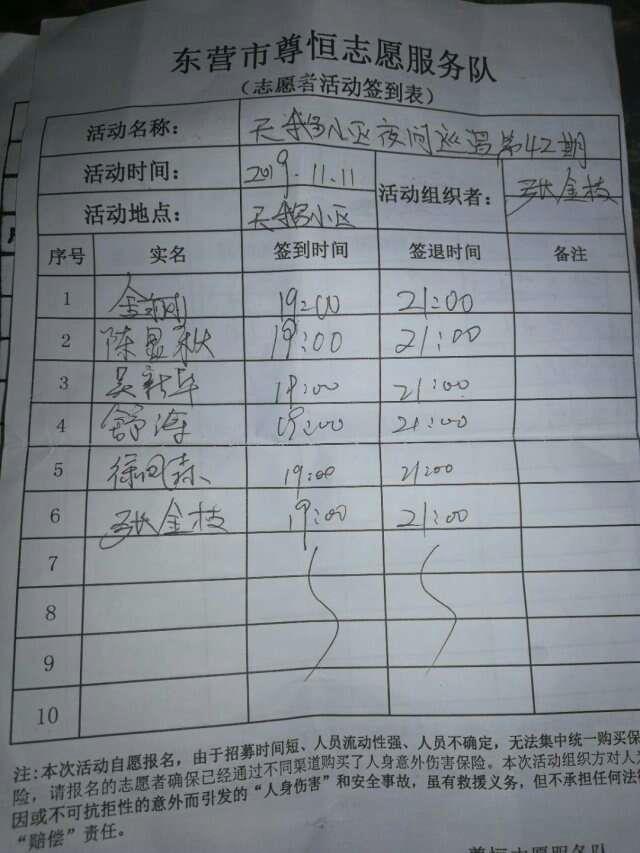 东营市尊恒志愿服务队
（志愿者活动签到表）
活动名称： 天鹅小区夜间巡逻第42期
活动时间： 2019.11.11 活动组织者： 张金枝
活动地点： 天鹅小区
序号 实名 签到时间 签退时间 备注
1 19:00 21:00
2 陈显秋 19:00 21:00
3 吴新华 19:00 21:00
4 舒海 19:00 21:00
5 19:00 21:00
6 张金枝 19:00 21:00
7
8
9
10
注:本次活动自愿报名，由于招募时间短、人员流动性强、人员不确定，无法集中统一购买保
险，请报名的志愿者确保已经通过不同渠道购买了人身意外伤害保险。本次活动组织方对人为
因或不可抗拒性的意外而引发的“人身伤害”和安全事故，虽有救援义务，但不承担任何法律
“赔偿”责任。
尊恒志愿服务队